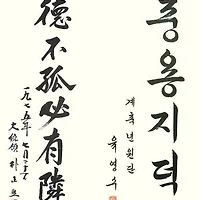 중용지덕
계축년 원단
육영수
德不孤必有隣
一九七五年 七月
大統領 朴正熙